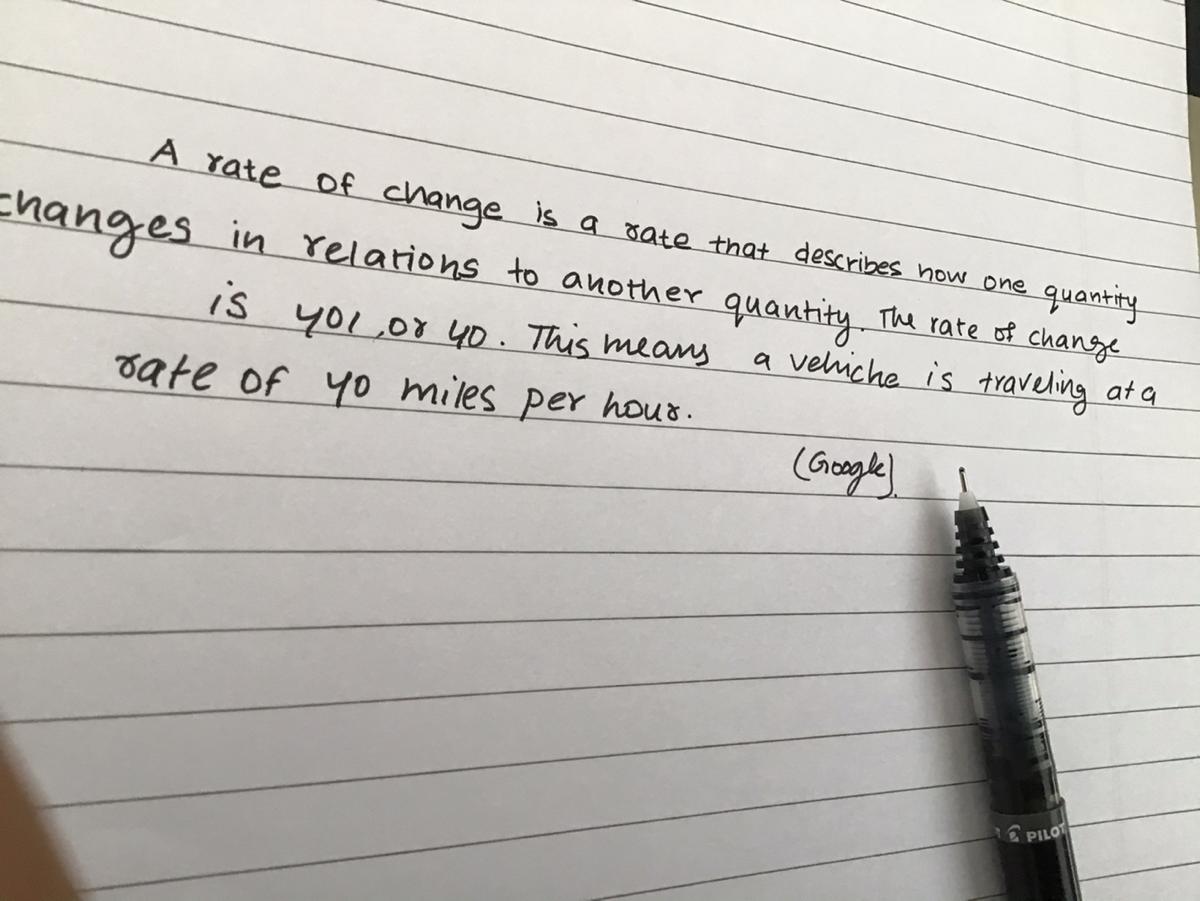 A rate of change is a rate that describes how one quantity
changes in relations to another quantity. The rate of change
is 401, or 40. This means a vehiche is traveling at a
rate of 40 miles per hour.
(Google).
PILOT